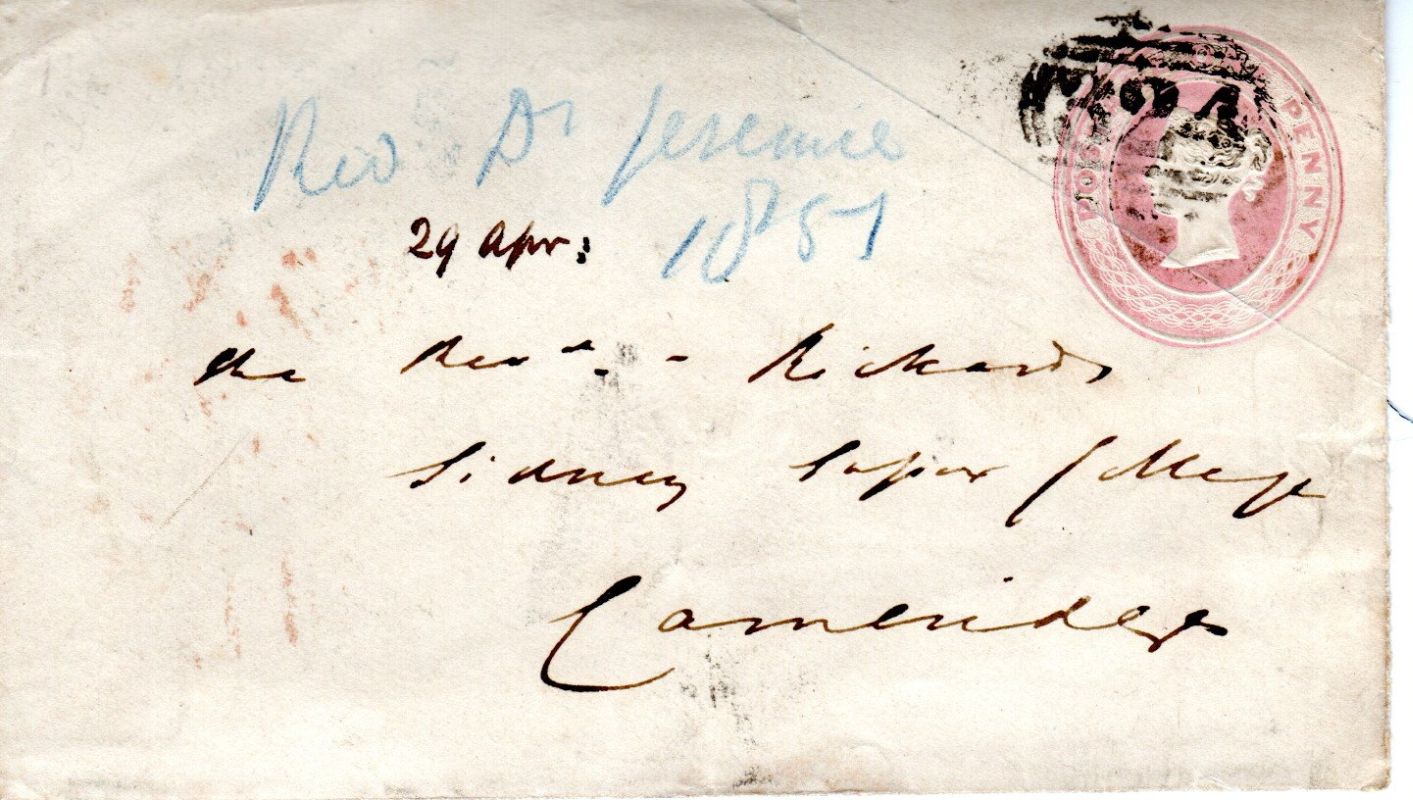 Rev Dr Jeremie
29 Apr: 1851
the Revd. - Richards
Sidney Sussex College
Cambridge
POSTAGE ONE PENNY